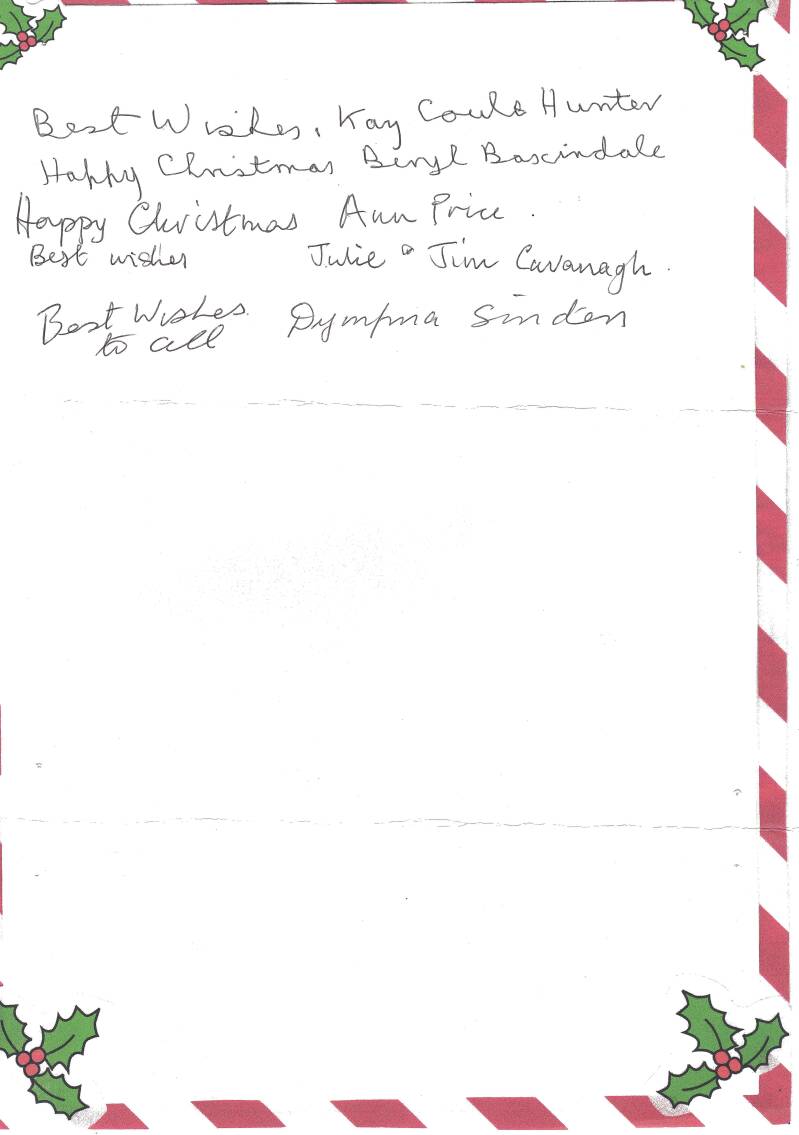 Best Wishes, Kay Hunter
Happy Christmas Beryl
Happy Christmas Ann Price.
Best wishes Julie & Jim Cavanagh.
Best Wishes Dympna Sinden
to all